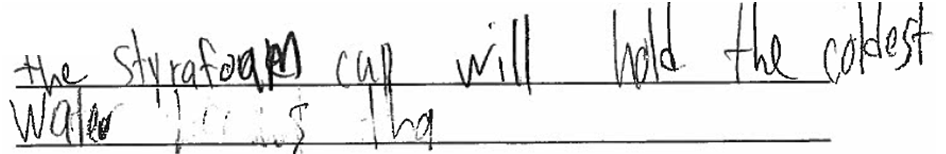 the styrafoam cup will hold the coldest
Water